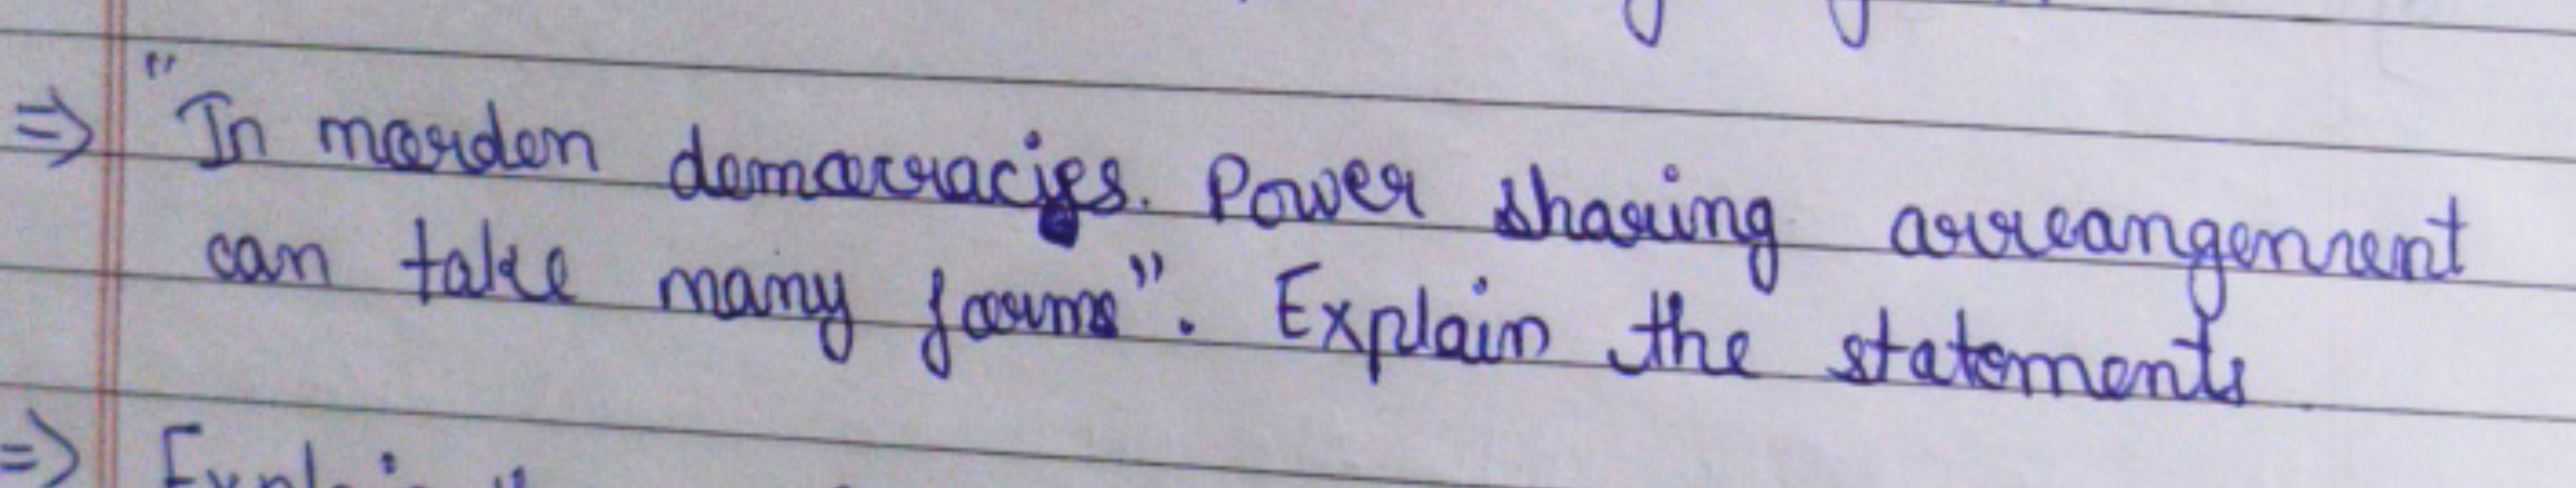 ⇒ "In morden democracies. Power sharing arreangement
can take many forms". Explain the statements
⇒ Explain